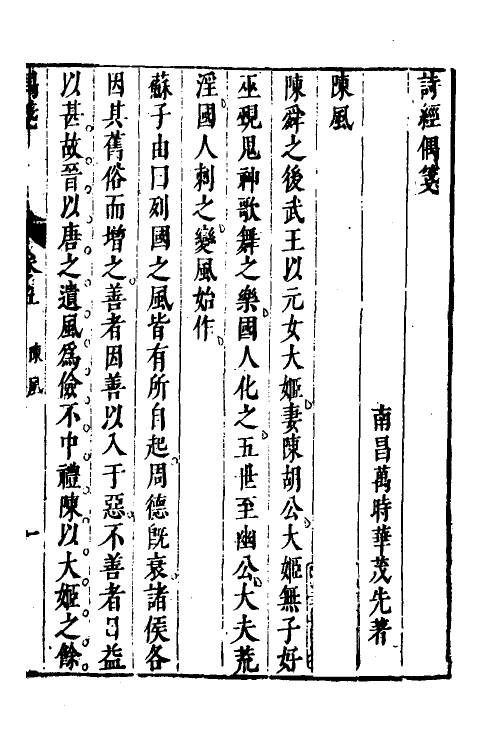 詩經偶箋
南昌萬時華茂先著
陳風
陳舜之後武王以元女大姬妻陳胡公大姬無子好
巫覡鬼神歌舞之樂國人化之五世至幽公大夫荒
淫國人刺之變風始作
蘇子由曰列國之風皆有所自起周德既衰諸侯各
因其舊俗而增之善者因善以入于惡不善者日益
以甚故晉以唐之遺風為儉不中禮陳以大姬之餘
陳風
一